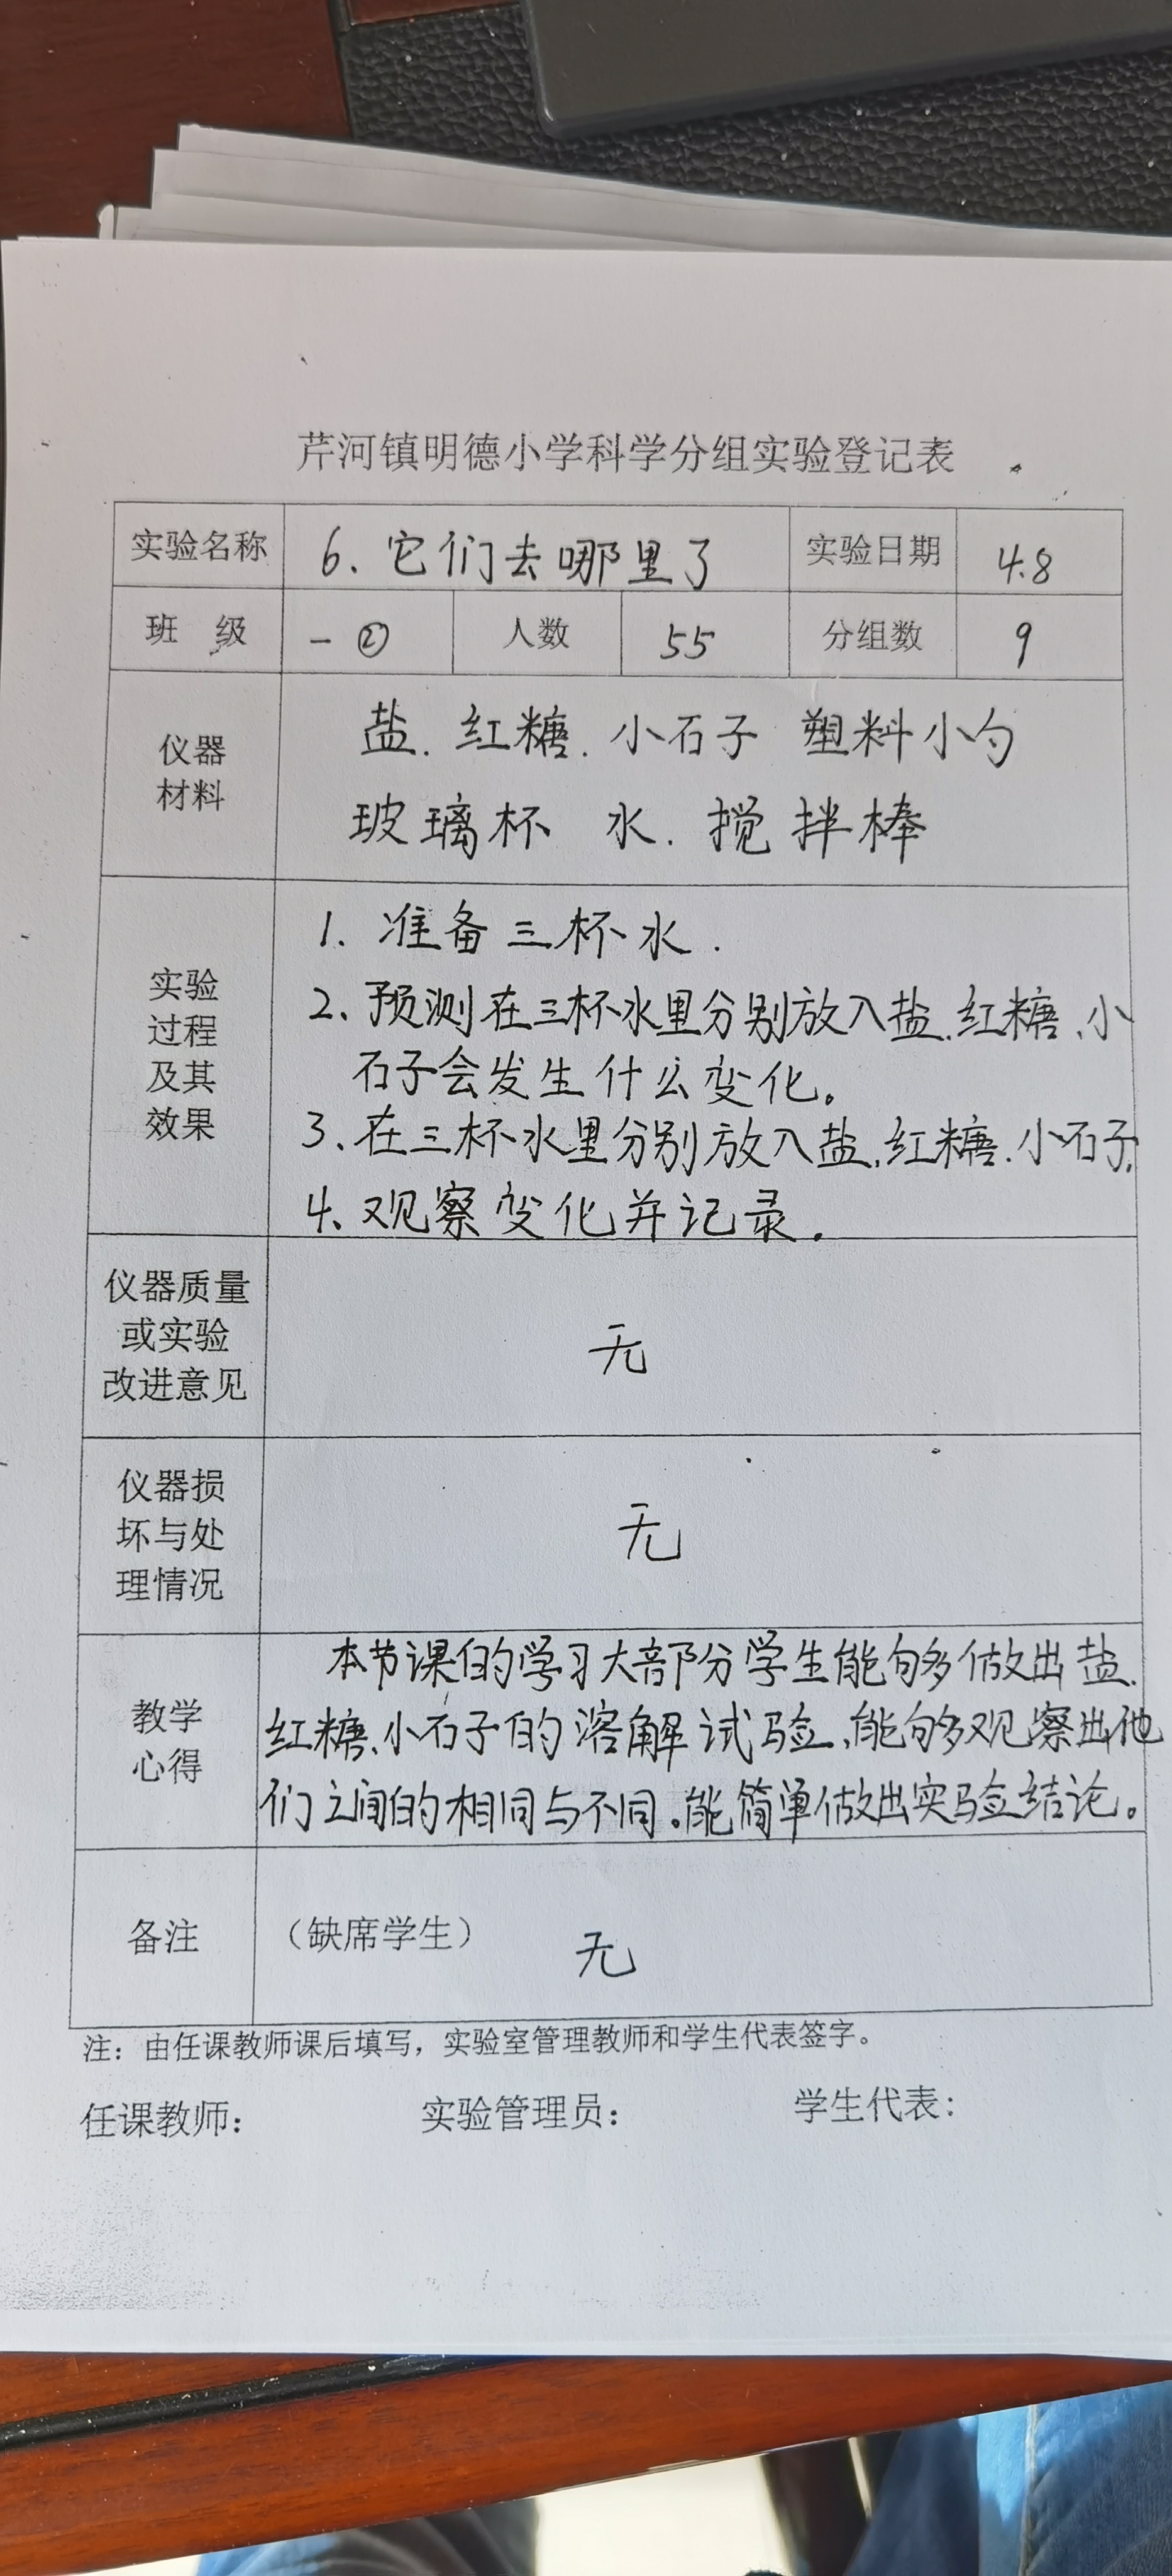 芹河镇明德小学科学分组实验登记表
实验名称 6. 它们去哪里了 实验日期 4.8
班 级 一② 人数 55 分组数 9
仪器
材料
盐. 红糖. 小石子 塑料小勺
玻璃杯 水. 搅拌棒
实验
过程
及其
效果
1. 准备三杯水.
2. 预测在三杯水里分别放入盐.红糖.小
石子会发生什么变化。
3、在三杯水里分别放入盐.红糖.小石子.
4、观察变化并记录.
仪器质量
或实验
改进意见
无
仪器损
坏与处
理情况
无
教学
心得
本节课的学习大部分学生能够做出盐.
红糖、小石子的溶解试验,能够观察出他
们之间的相同与不同。能简单做出实验结论。
备注
(缺席学生) 无
注：由任课教师课后填写，实验室管理教师和学生代表签字。
任课教师： 实验管理员： 学生代表：